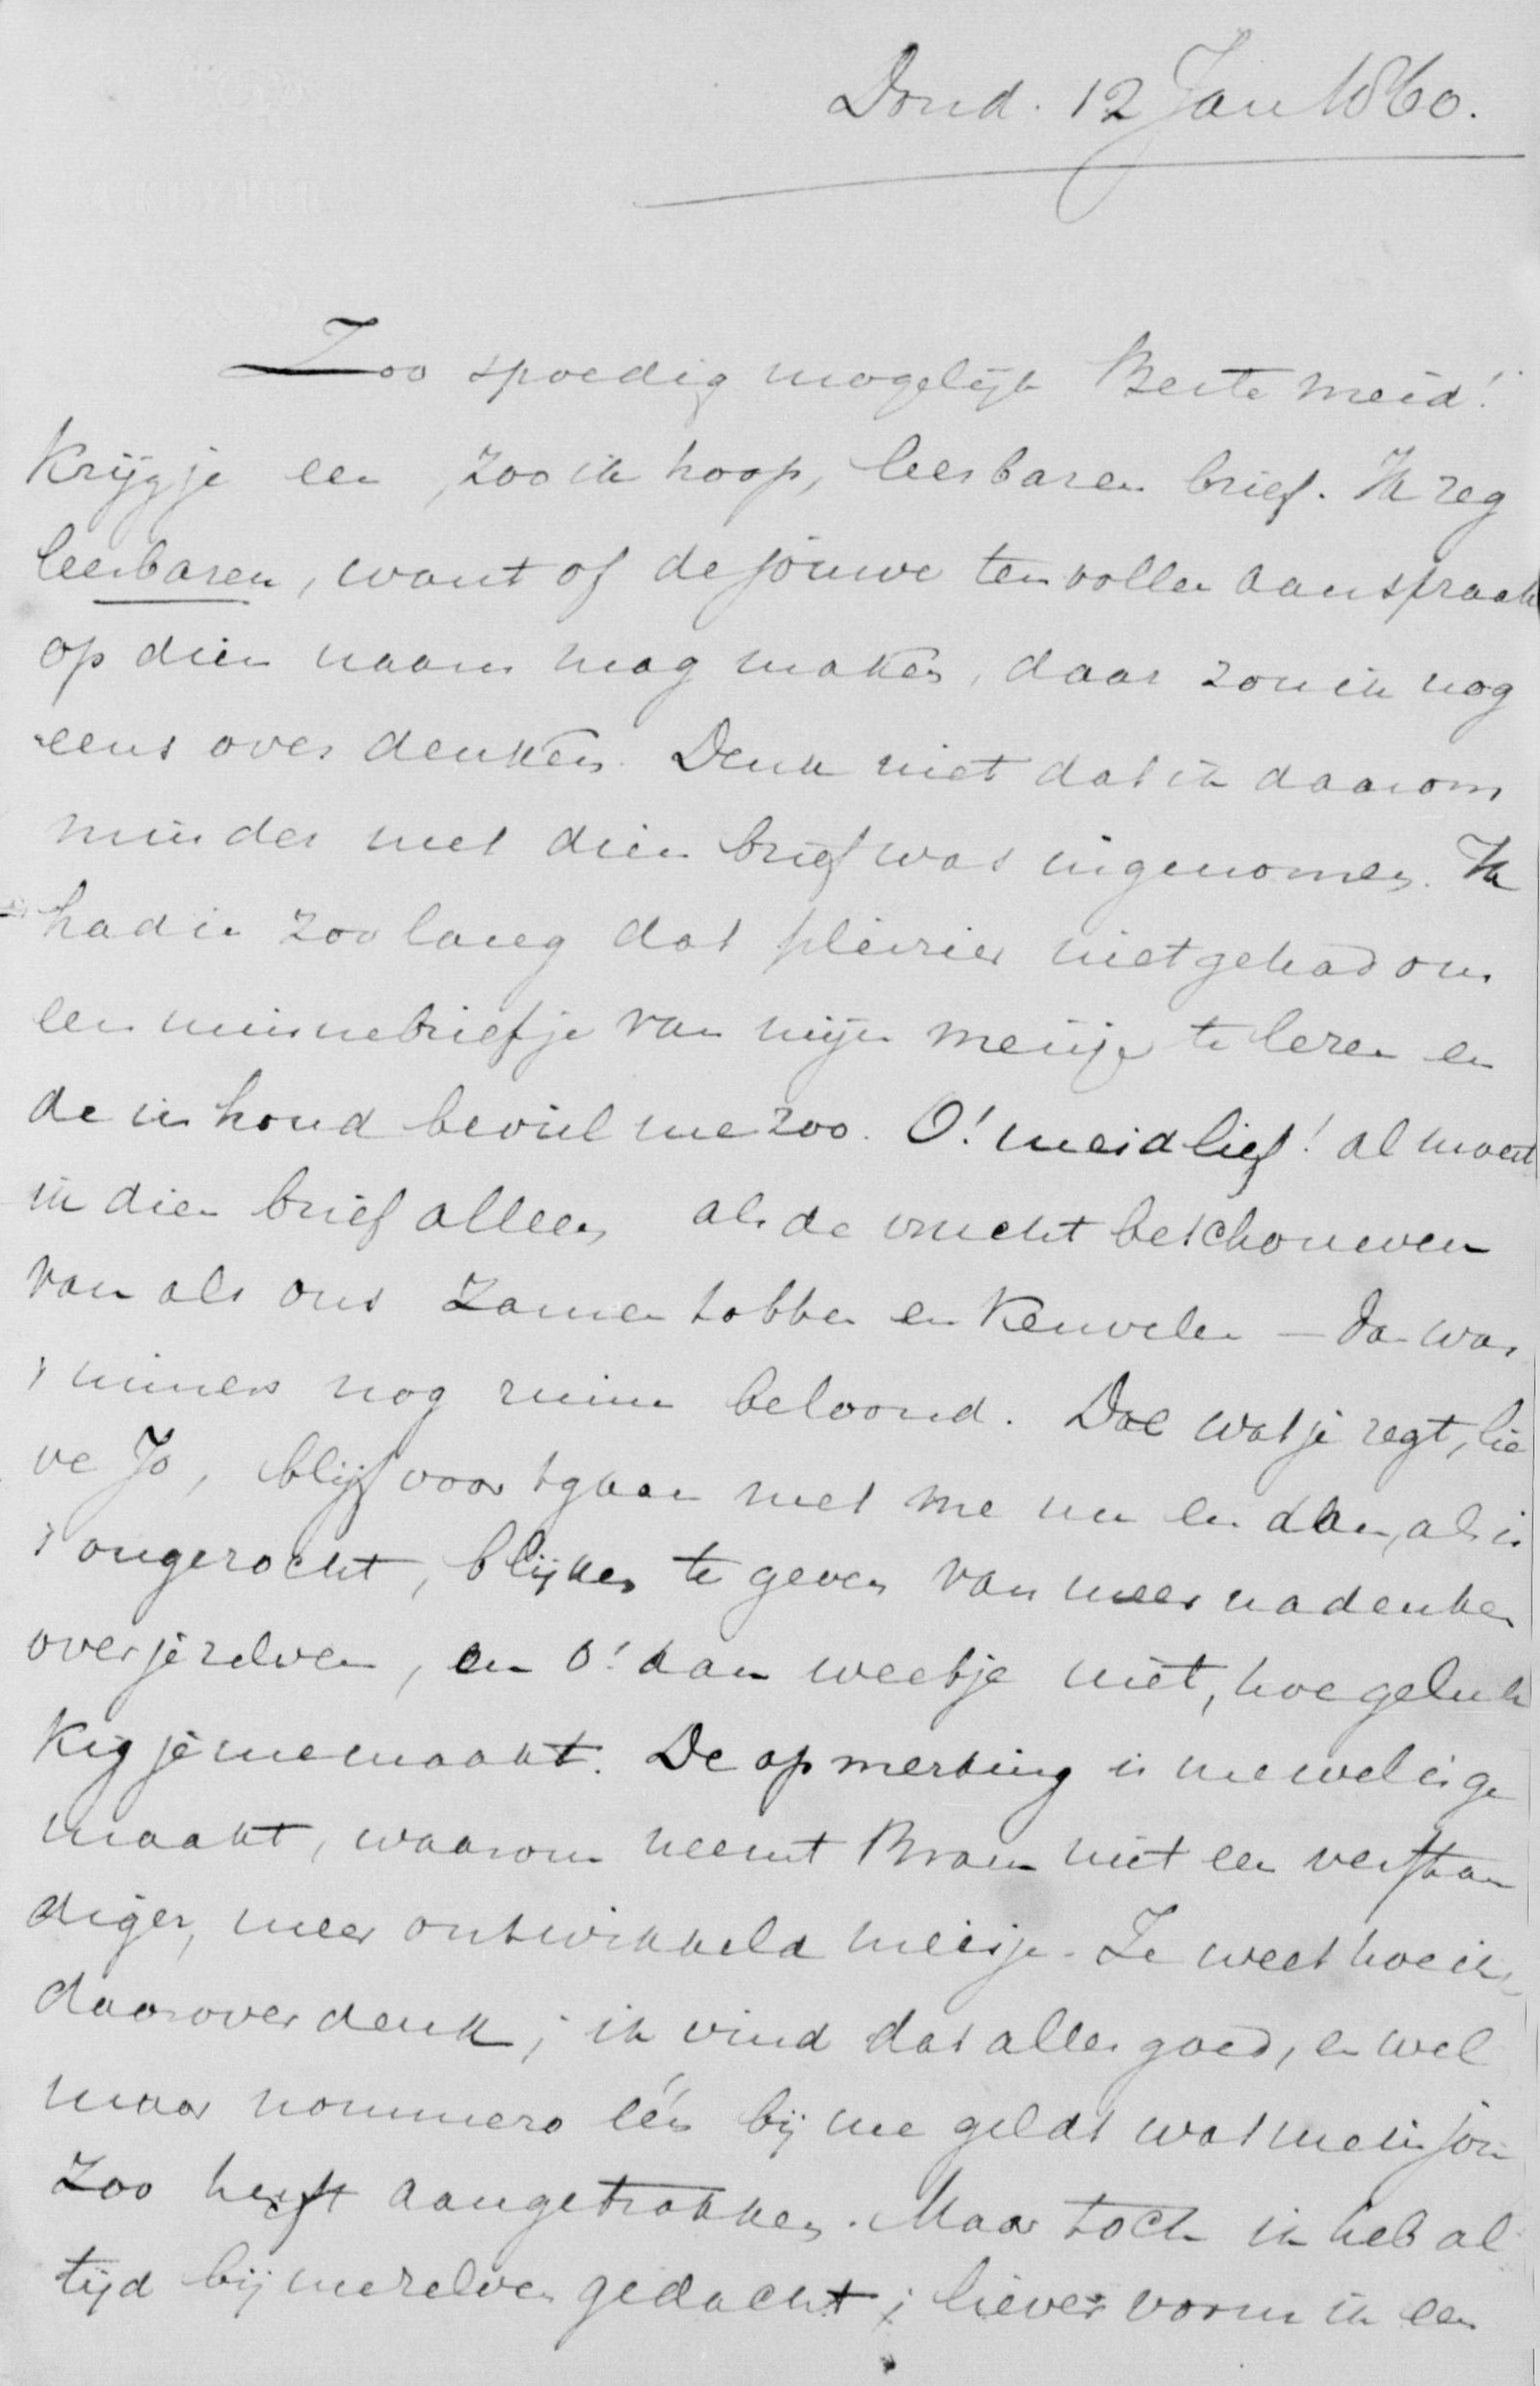 Dond. 12 Jan 1860.
Zoo spoedig mogelijk Beste meid!
krijg je een, zoo ik hoop, leesbaren brief. Ik zeg
leesbaren, want of de jouwe ten vollen aanspraak
op dien naam mag maken, daar zou ik nog
eens over denken. Denk niet dat ik daarom
minder met dien brief was ingenomen. Ik
had in zoo lang dat pleizier niet gehad om
een minnebriefje van mijn meisje te lezen en
de inhoud beviel me zoo. O! meidlief! al moest
ik dien brief alleen als de vrucht beschouwen
van als ons zamen tobben en keuvelen - dan was
't nimmer nog ruim beloond. Doe wat je zegt, lie
ve Jo, blijf voortgaan met me nu en dan, al is
't ongezocht, blijken te geven van meer nadenken
over je zelven, en O! dan weet je niet, hoe geluk
kig je me maakt. De opmerking is me wel eis ge
maakt, waarom neemt Bram niet een verstan
diger, meer ontwikkeld meisje. Je weet hoe ik
daarover denk; ik vind dat alles goed, en wel
maar nommero één bij me geldt wat me in jou
zoo heeft aangetrokken. Maar toch ik heb al
tijd bij mezelven gedacht; liever vorm ik een